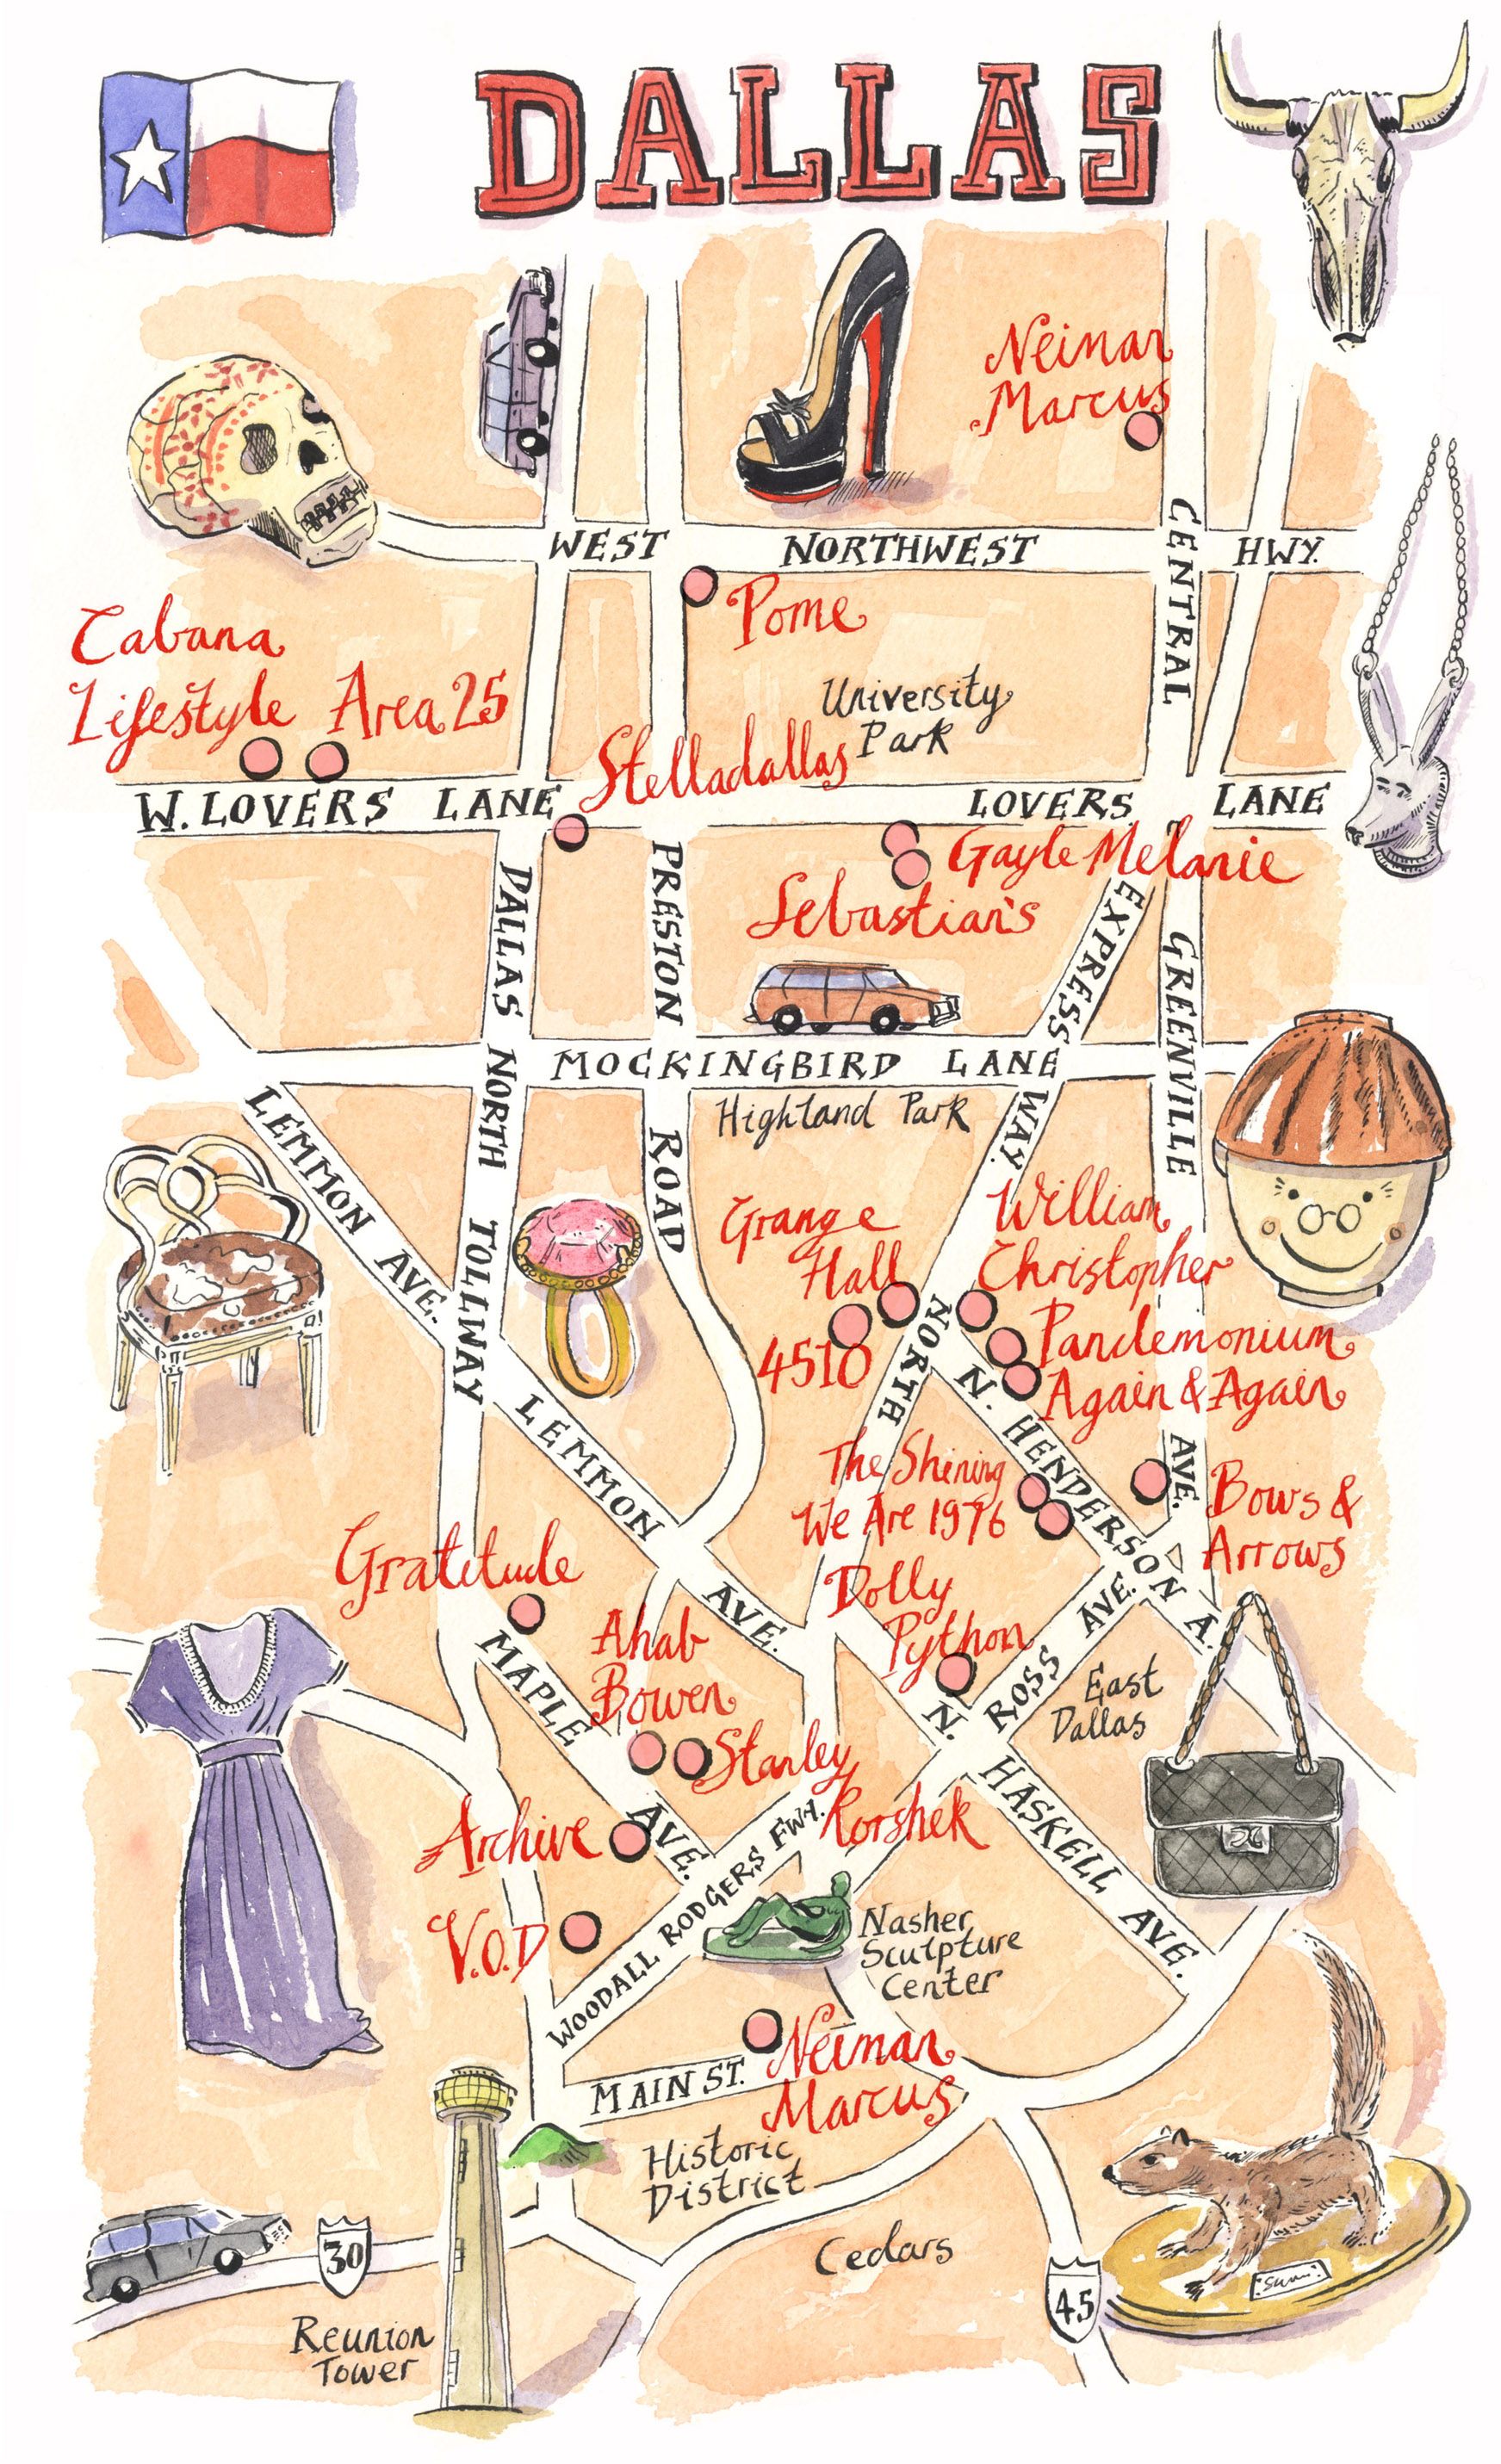 DALLAS
Neiman
Marcus
WEST NORTHWEST HWY.
CENTRAL
Pome
Cabana
Lifestyle
Area 25
University
Park
Stelladallas
W. LOVERS LANE
LOVERS LANE
Gayle Melanie
Sebastian's
DALLAS NORTH TOLLWAY
PRESTON ROAD
EXPRESS WAY.
GREENVILLE AVE.
MOCKINGBIRD LANE
Highland Park
LEMMON AVE.
Grange
Hall
4510
William
Christopher
Pandemonium
Again & Again
NORTH
N. HENDERSON A.
LEMMON AVE.
The Shining
We Are 1976
Bows &
Arrows
Gratitude
Dolly
Python
ROSS AVE.
East
Dallas
MAPLE AVE.
Ahab
Bowen
Stanley
Korshek
N. HASKELL AVE.
Archive
V.O.D
WOODALL RODGERS FWY.
Nasher
Sculpture
Center
MAIN ST.
Neiman
Marcus
Historic
District
Cedars
30
45
Reunion
Tower